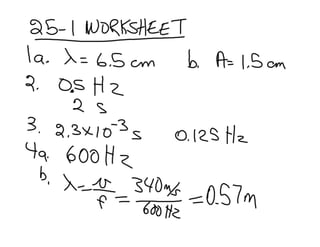 25-1 WORKSHEET
1a. λ = 6.5 cm b. A = 1.5 cm
2. 0.5 Hz
2 s
3. 2.3×10⁻³ s 0.125 Hz
4a. 600 Hz
b. λ = v/f = 340 m/s / 600 Hz = 0.57 m